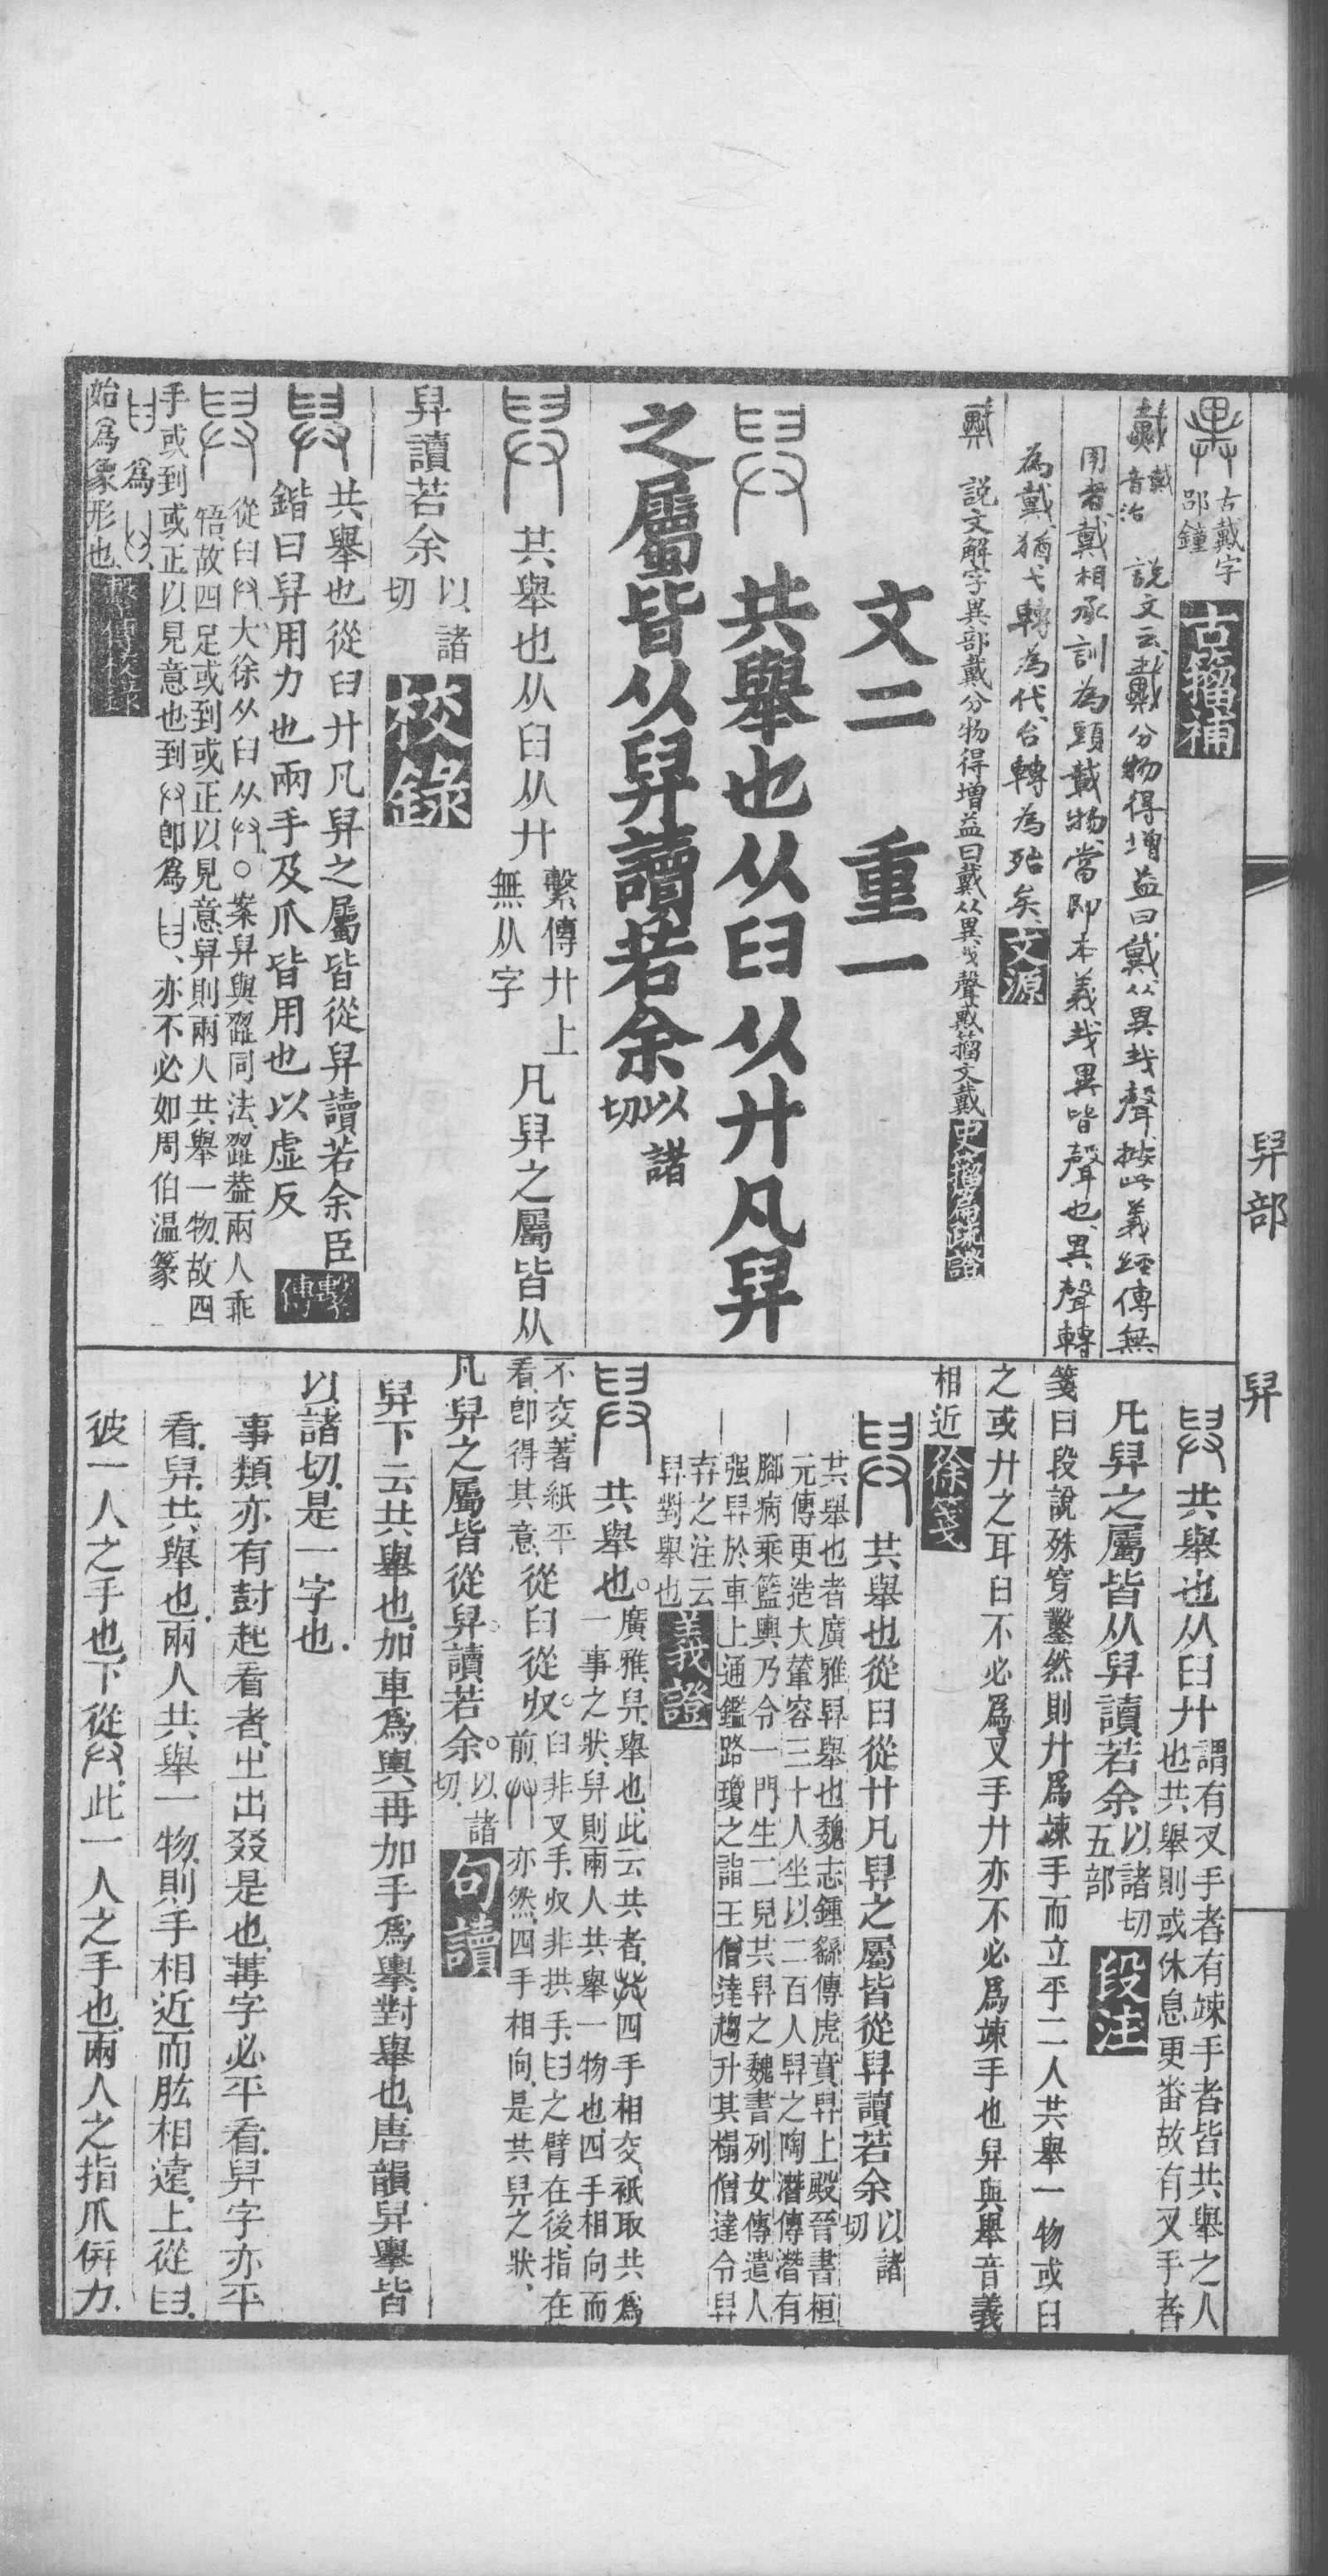 古戴字
邵鐘
古籀補
戴
音治
說文云戴分物得增益曰戴从異𢦏聲據此義經傳無
用者戴相承訓為頭戴物當即本義𢦏異皆聲也異聲轉
為戴猶弋轉為代台轉為殆矣文源
說文解字異部戴分物得增益曰戴从異𢦏聲戴籀文戴史籀篇疏證
文二　重一
共舉也从臼从廾凡舁
之屬皆从舁讀若余以諸切
共舉也从臼从廾繫傳廾上無从字凡舁之屬皆从
舁讀若余以諸切校錄
共舉也從臼廾凡舁之屬皆從舁讀若余臣
鍇曰舁用力也兩手及爪皆用也以虛反繫傳
從臼大徐从臼从○案舁與䠱同法䠱葢兩人乖
牾故四足或到或正以見意舁則兩人共舉一物故四
手或到或正以見意也到卽爲亦不必如周伯溫篆
爲
始爲象形也繫傳校錄
舁部
舁
共舉也从臼廾謂有叉手者有竦手者皆共舉之人也共舉則或休息更畨故有叉手者
凡舁之屬皆从舁讀若余以諸切五部段注
箋曰段說殊穿鑿然則廾爲竦手而立乎二人共舉一物或臼
之或廾之耳臼不必爲叉手廾亦不必爲竦手也舁與舉音義
相近徐箋
共舉也從臼從廾凡舁之屬皆從舁讀若余以諸切
共舉也者廣雅舁舉也魏志鍾繇傳虎賁舁上殿晉書桓
元傳更造大輦容三十人坐以二百人舁之陶潛傳潛有
腳病乘籃輿乃令一門生二兒共舁之魏書列女傳遣人
强舁於車上通鑑路瓊之詣王僧達趨升其榻僧達令舁
弃之注云
舁對舉也義證
共舉也廣雅舁舉也此云共者四手相交衹取共爲一事之狀舁則兩人共舉一物也四手相向而
不交著紙平看卽得其意從臼從収臼非叉手収非拱手之臂在後指在前亦然四手相向是共舁之狀
凡舁之屬皆從舁讀若余以諸切句讀
舁下云共舉也加車爲輿再加手爲擧對舉也唐韻舁舉皆
以諸切是一字也
事類亦有討起看者㞢出叕是也冓字必平看舁字亦平
看舁共舉也兩人共舉一物則手相近而肱相遠上從
彼一人之手也下從此一人之手也兩人之指爪倂力